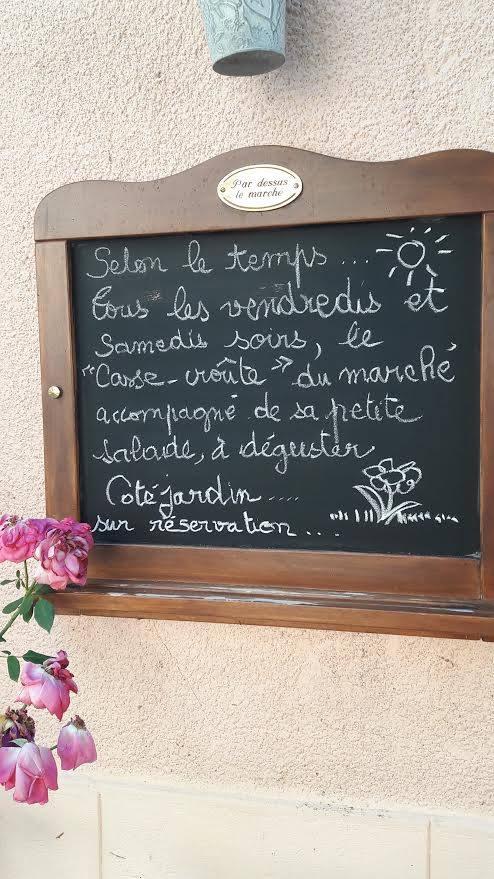 Par dessus
le marché
Selon le temps ...
tous les vendredis et
Samedis soirs, le
"Casse-croûte" du marché
accompagné de sa petite
salade, à déguster
Coté jardin ....
sur réservation ...